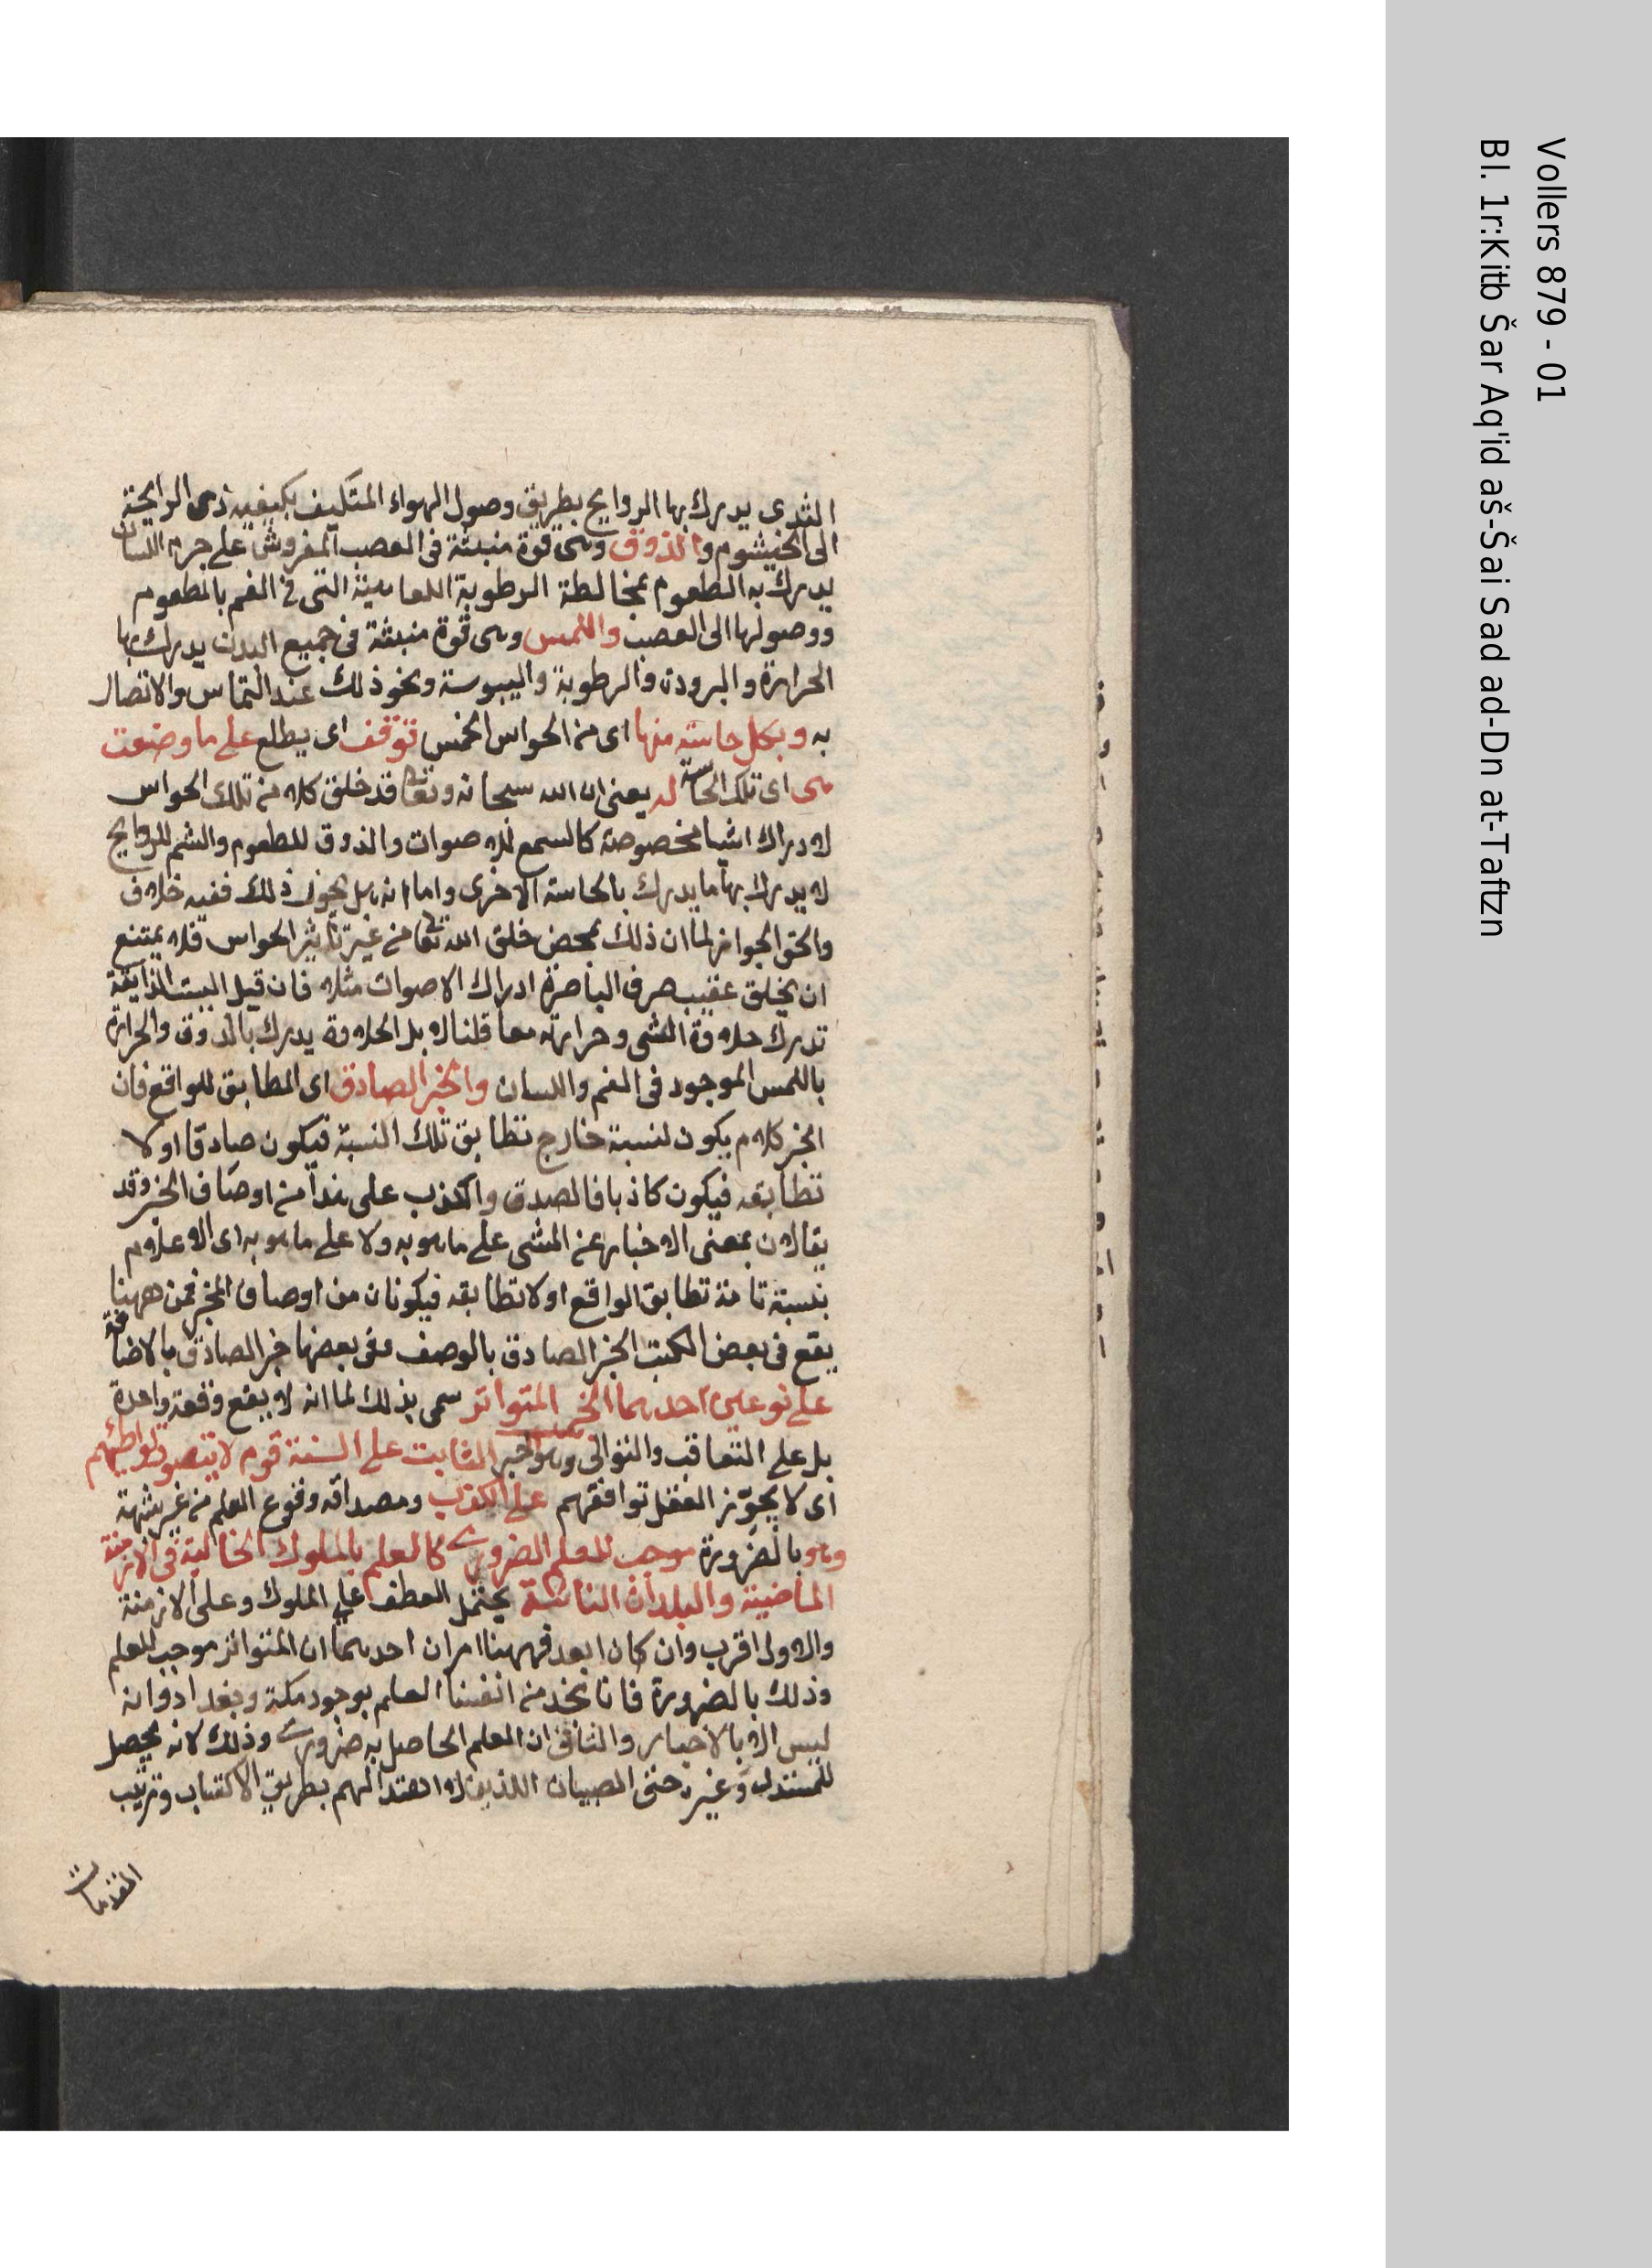 الثدى يدرك بها الروايح بطريق وصول الهواء المتكيف بكيفيه ذى الرايحة
الى الخيشوم والذوق وهى قوة منبثة فى العصب المفروش على جرم اللسان
يدرك به الطعوم بمخالطة الرطوبة اللعابية التى فى الفم بالمطعوم
ووصولها الى العصب واللمس وهى قوة منبثة فى جميع البدن يدرك بها
الحرارة والبرودة والرطوبة واليبوسة ونحو ذلك عند التماس والاتصال
به وبكل حاسة منها اى من الحواس الخمس توقف اى يطلع على ما وضعت
هى اى تلك الحاسة له يعنى ان الله سبحانه وتعا قد خلق كلا من تلك الحواس
لادراك اشيا مخصوصة كالسمع للاصوات والذوق للطعوم والشم للروايح
لا يدرك بها ما يدرك بالحاسة الاخرى واما انه هل يجوز ذلك ففيه خلاف
والحق الجواز لما ان ذلك بمحض خلق الله تعا من غير تاثير الحواس فلا يمتنع
ان يخلق عقيب صرف الباصرة ادراك الاصوات مثلا فان قيل اليست الذايقة
تدرك حلاوة الشى وحرارته معا قلنا لا بل الحلاوة يدرك بالذوق والحرارة
باللمس الموجود فى الفم واللسان والخبر الصادق اى المطابق للواقع فان
الخبر كلام يكون لنسبة خارج تطابق تلك النسبة فيكون صادقا او لا
تطابقه فيكون كاذبا فالصدق والكذب على هذا من اوصاف الخبر وقد
يقالان بمعنى الاخبار عن الشى على ما هو به ولا على ما هو به اى الاعلام
بنسبة تامة تطابق الواقع او لا تطابقه فيكونان من اوصاف المخبر فمن ههنا
يقع فى بعض الكتب الخبر الصادق بالوصف وفى بعضها خبر الصادق بالاضافة
على نوعين احدهما الخبر المتواتر سمى بذلك لما انه لا يقع وقعة واحدة
بل على التعاقب والتوالى وهو الخبر الثابت على السنة قوم لا يتصور تواطئهم
اى لا يجوّز العقل توافقهم على الكذب ومصداقه وقوع العلم من غير شبهة
وهو بالضرورة موجب للعلم الضرورى كالعلم بالملوك الخالية فى الازمنة
الماضية والبلدان النائية يحتمل العطف على الملوك وعلى الازمنة
والاول اقرب وان كان ابعد فههنا امران احدهما ان المتواتر موجب للعلم
وذلك بالضرورة فانا نجد من انفسنا العلم بوجود مكة وبغداد وانه
ليس الا بالاخبار والثانى ان العلم الحاصل به ضرورى وذلك لانه يحصل
للمستدل وغيره حتى الصبيان اللذين لا اهتدا لهم بطريق الاكتساب وترتيب
المقدمات
Vollers 879 - 01
Bl. 1r:Kitb Šar Aq'id aš-Šai Sad ad-Dn at-Taftzn